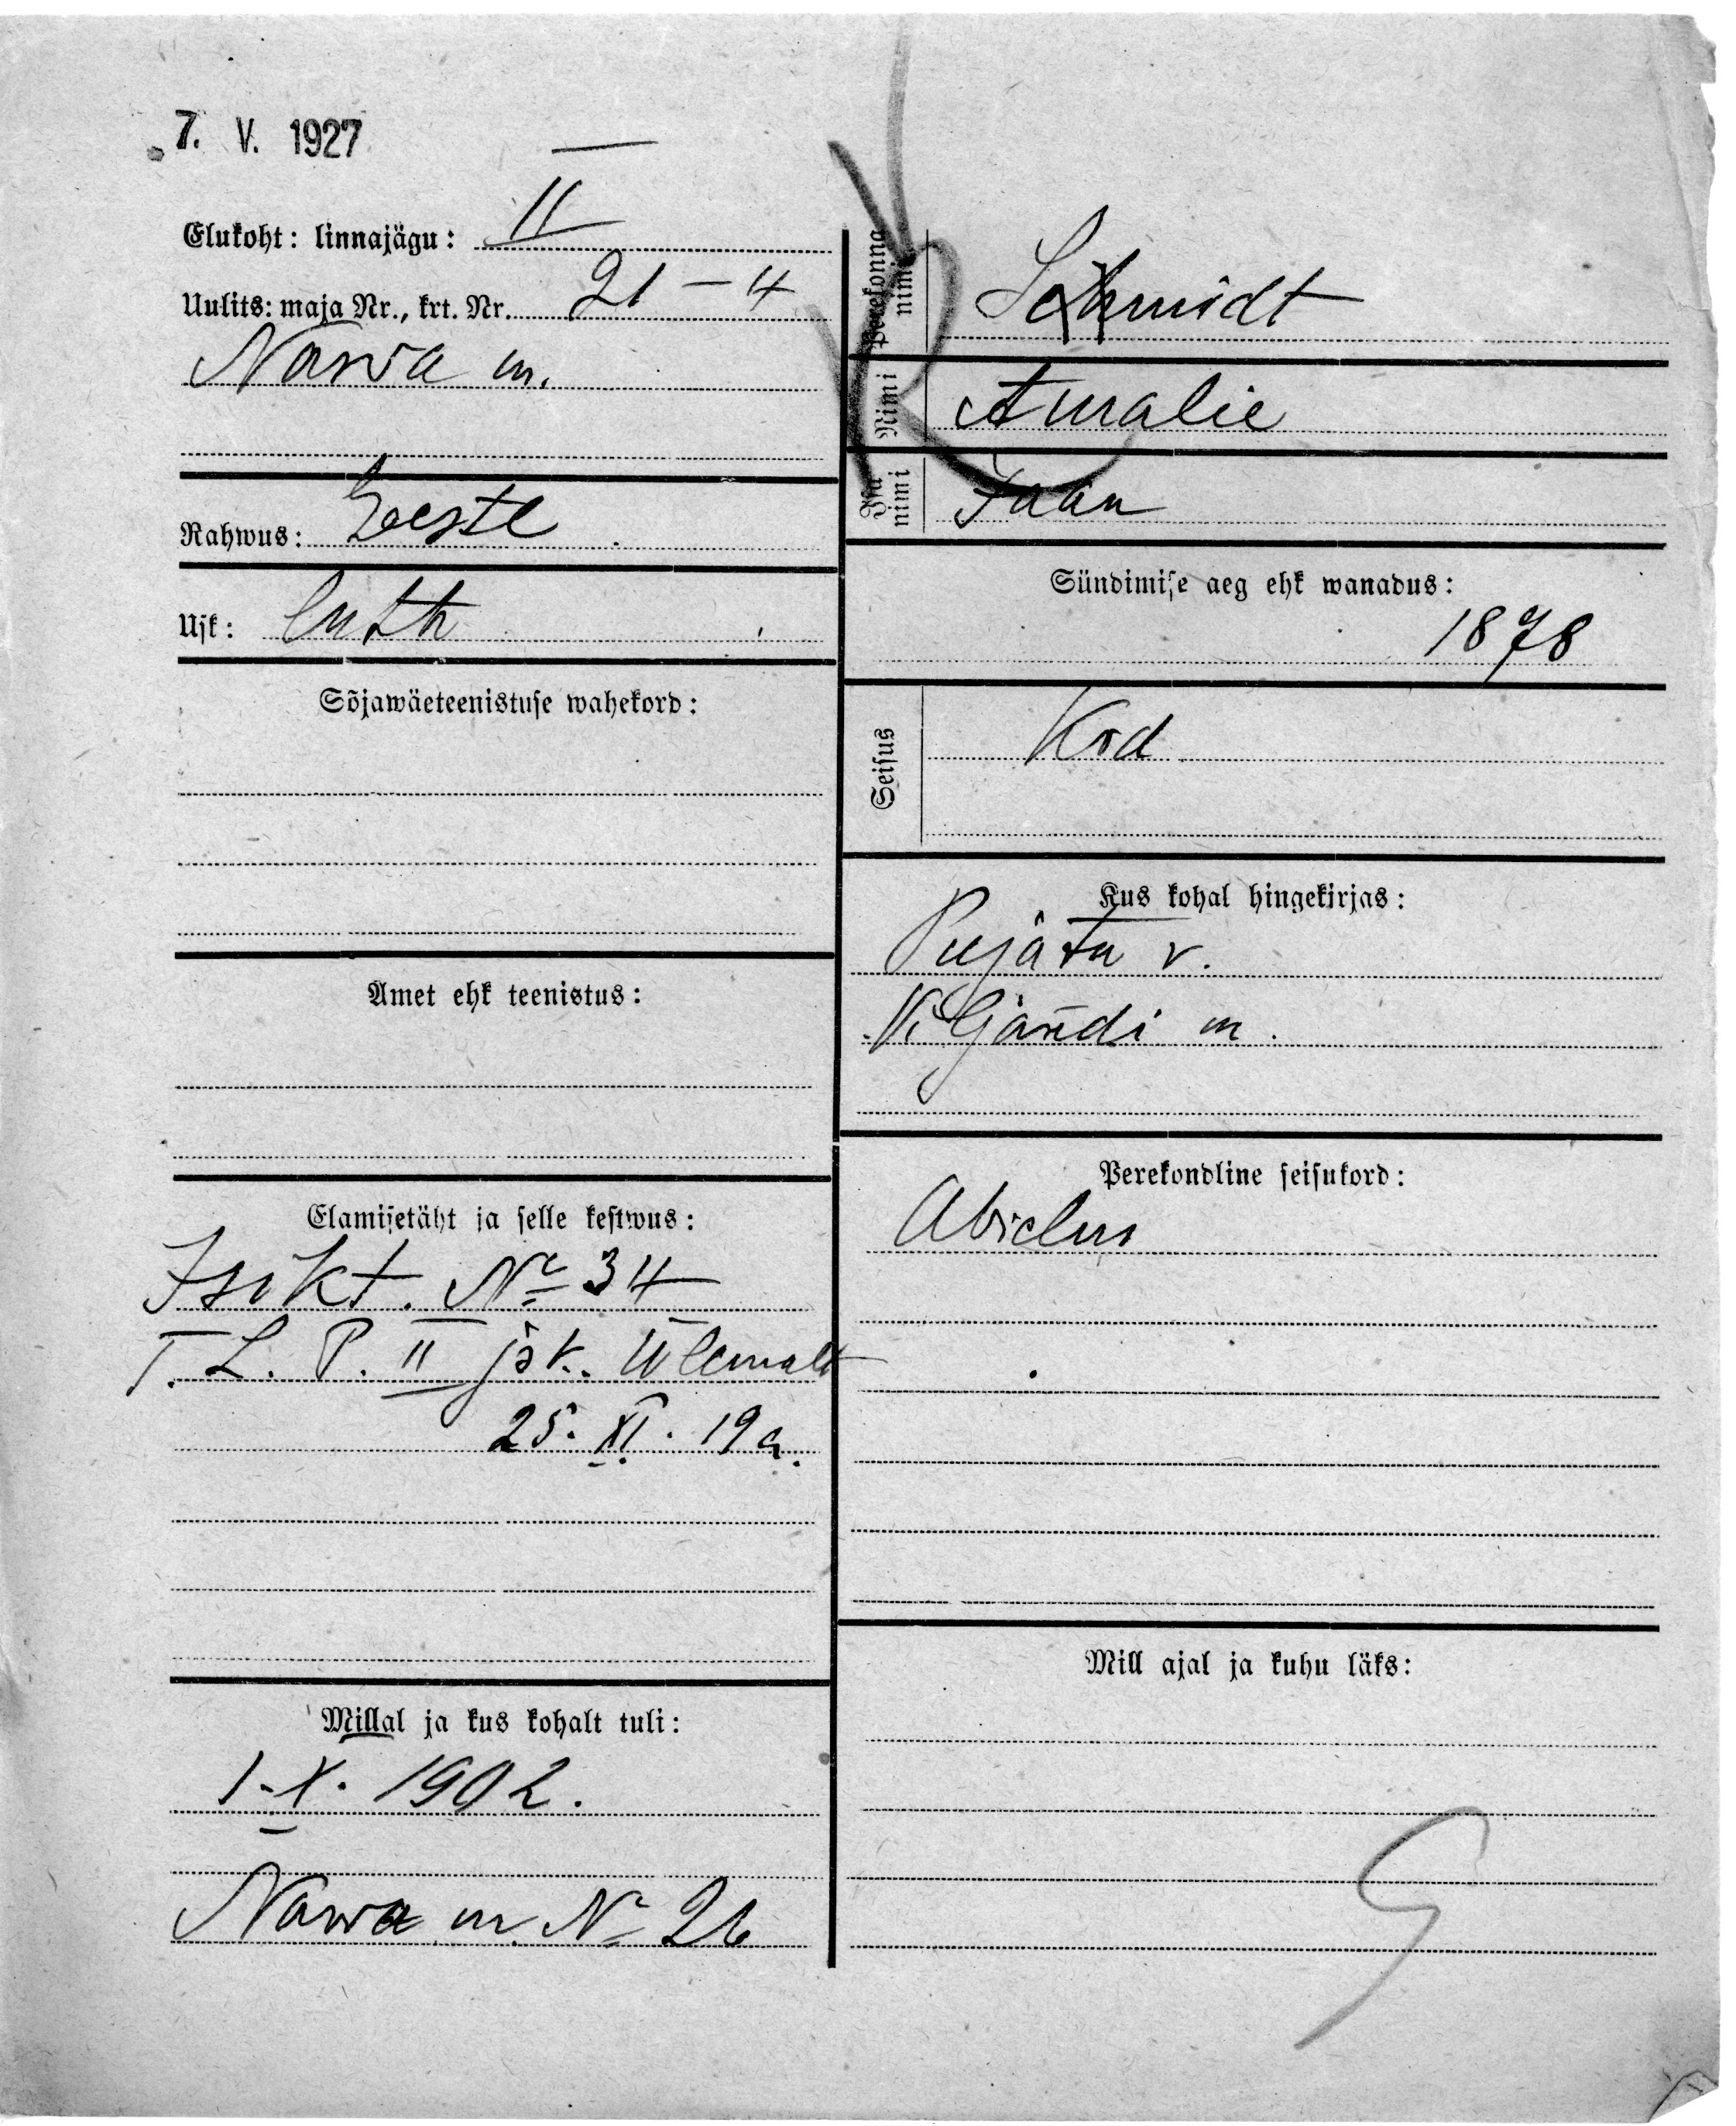 7. V. 1927
Elukoht: linnajägu: II
Uulits: maja Nr., krt. Nr. 21 – 4
Narva m.
Rahwus: Eeste
Usk: luth
Sõjawäeteenistuse wahekord:
Amet ehk teenistus:
Elamisetäht ja selle kestwus:
Isikt. № 34
T. L. P. II jsk. Ülemalt
25. XI. 19 a.
Millal ja kus kohalt tuli:
1. X. 1902.
Narva m. № 26
Perekonna nimi Schmidt
Nimi Amalie
Isa nimi Jaan
Sündimise aeg ehk wanadus:
1878
Seisus Kod
Kus kohal hingekirjas:
Pujatu v.
Viljandi m.
Perekondline seisukord:
Abielus
Mill ajal ja kuhu läks: